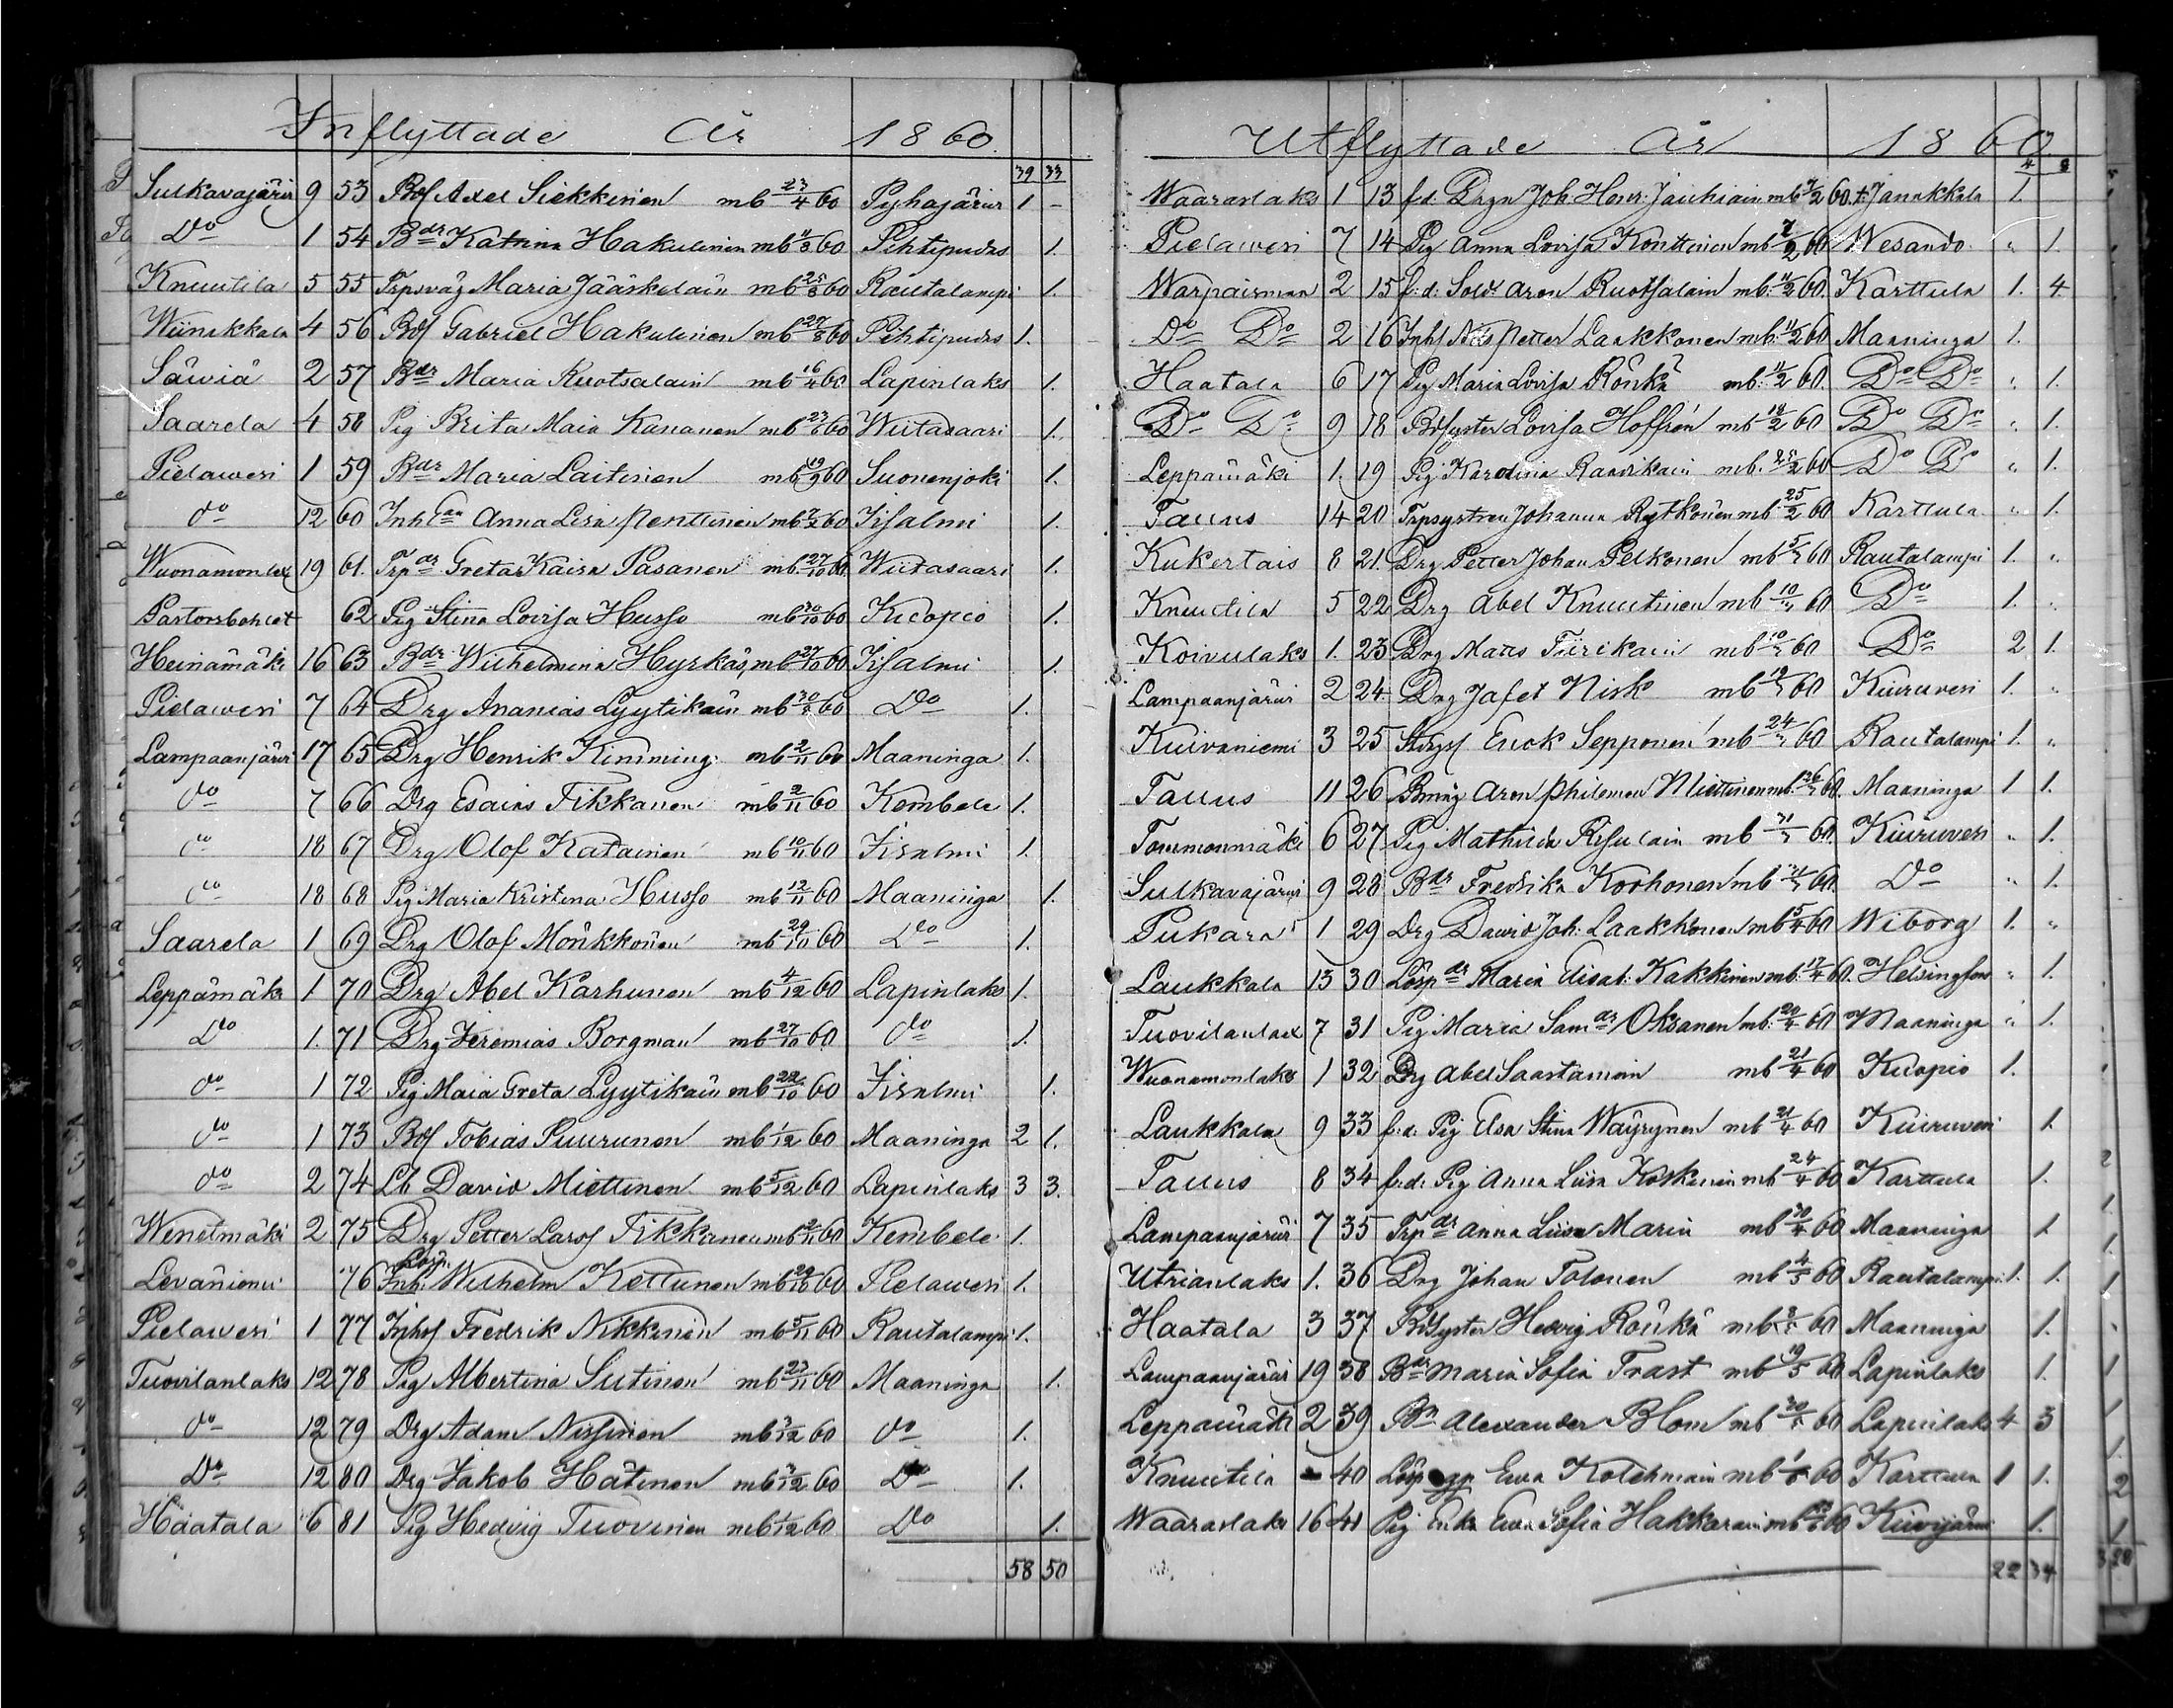 Inflyttade År 1860.
39 33
Sulkavajärvi 9 53 Bdf Axel Siekkinen mb 23/4 60 Pyhajärvi 1 -
Do 1 54 Bdr Katrina Hakulinen mb 60 Pihtipudas 1.
Knuutila 5 55 Maria Jääskelain mb 25/8 60 Rautalampi 1.
Wiinikkala 4 56 Bdf Gabriel Hakulinen mb 27/8 60 Pihtipudas 1.
Säwiä 2 57 Bdr Maria Ruotsalain mb 16/4 60 Lapinlaks 1.
Saarela 4 58 Pig Brita Maia Kananen mb 60 Wiitasaari 1.
Pielawesi 1 59 Bdr Maria Laitinen mb 19/9 60 Suonenjoki 1.
do 12 60 Anna Lisa Penttinen mb 60 Iisalmi 1.
Wuonamonlax 19 61. Trp dr Greta Kaisa Pasanen mb 27/10 60 Wiitasaari 1.
Pastorsbohlet 62 Pig Stina Lovisa Husso mb 30/10 60 Kuopio 1.
Heinämäki 16 63 Bdr Wilhelmina Hyrkäs, mb 27/10 60 Iisalmi 1.
Pielawesi 7 64 Drg Ananias Lyytikäin mb 60 Do 1.
Lampaanjärvi 17 65 Drg Henrik Kimming mb 2/11 60 Maaninga 1.
do 7 66 Drg Esaias Tikkanen mb 2/11 60 Kembele 1.
do 18 67 Drg Olof Katainen mb 10/11 60 Iisalmi 1.
do 18 68 Pig Maria Kristina Husso mb 12/11 60 Maaninga 1.
Saarela 1 69 Drg Olof Mönkkönen mb 29/10 60 Do 1.
Leppämäki 1 70 Drg Abel Karhunen mb 4/12 60 Lapinlaks 1.
Do 1. 71 Drg Jeremias Borgman mb 27/10 60 do 1.
do 1 72 Pig Maia Greta Lyytikäin mb 22/10 60 Iisalmi 1.
do 1 73 Bdf Tobias Puurunen mb 1/12 60 Maaninga 2 1.
do 2 74 Lb David Miettinen mb 5/12 60 Lapinlaks 3 3.
Wenetmäki 2 75 Drg Petter Larsf Tikkanen mb 2/11 60 Kembele 1.
Levaniemi 76 Lösp. Inh. Wilhelm Kettunen mb 29/10 60 Pielawesi 1.
Pielawesi 1 77 Inhsf Fredrik Nikkinen mb 5/11 60 Rautalampi 1.
Tuovilanlaks 12 78 Pig Albertina Sutinen mb 23/11 60 Maaninga 1.
do 12 79 Drg Adam Nissinen mb 3/12 60 do 1.
Do 12 80 Drg Jakob Hätinen mb 3/12 60 Do 1.
Haatala 6 81 Pig Hedvig Tuovinen mb 1/12 60 Do 1.
58 50
Utflyttade År 1860
4 8
Waaraslaks 1 13 f.d. Drgn Joh. Henr. Jauhiain mb 60 Janakkala 1.
Pielawesi 7 14 Pig Anna Lovisa Konttinen mb 7/2 60 Wesando " 1.
Warpaismaa 2 15 f.d. Sold. Aron Ruotsalain mb. 11/2 60. Karttula 1. 4.
Do Do 2 16 Inhs Nils Petter Laakkonen mb. 11/2 60 Maaninga 1.
Haatala 6 17 Pig Maria Lovisa Rönkä mb. 11/2 60. Do Do " 1.
Do Do 9 18 Bdsyster Lovisa Hoffrén mb 18/2 60 Do Do " 1.
Leppämäki 1. 19 Pig Karolina Raasikain mb. 25/2 60 Do Do " 1.
Tauus 14 20 Johanna Rytkönen mb. 25/2 60 Karttula " 1.
Kukertais 8 21. Drg Petter Johan Pelkonen mb 5/3 60 Rautalampi 1. "
Knuutila 5 22 Drg Abel Knuutinen mb 10/3 60 Do 1. "
Koivulaks 1. 23 Drg Matts Tiirikain mb 10/3 60 Do 2 1.
Lampaanjärvi 2 24. Drg Jafet Nisk mb 60 Kiuruvesi 1. "
Kuivaniemi 3 25 Erick Sepponen mb 24/3 60 Rautalampi 1. "
Tauus 11 26 Aron Philemon Miettinen mb. 26/3 60. Maaninga 1 1.
Tommonmäki 6 27 Pig Mathilda Risulain mb 31/3 60. Kiuruvesi " 1.
Sulkavajärvi 9 28 Bdr Fredrika Korhonen mb 60. Do " 1.
Pukara 1 29 Drg David Joh. Laakkonen mb 60 Wiborg 1. "
Laukkala 13 30 Lösp dr Maria Elisab. Kakkinen mb. 17/4 60. Helsingfors " 1.
Tuovilanlax 7 31 Pig Maria Sam dr Oksanen mb. 20/4 60 Maaninga " 1.
Wuonamonlaks 1 32 Drg Abel Saastamoin mb 21/4 60 Kuopio 1.
Laukkala 9 33 f.d. Pig Elsa Stina Wäyrynen mb 21/4 60 Kiuruvesi 1
Tauus 8 34 f.d. Pig Anna Liisa Koskinen mb 24/4 60 Karttula 1.
Lampaanjärvi 7 35 Trp dr Anna Liisa Marin mb 30/4 60 Maaninga 1
Utrianlaks 1. 36 Drg Johan Tolonen mb 4/5 60 Rautalampi 1. 1.
Haatala 3 37 Bdsyster Hedvig Rönkä mb 60 Maaninga 1.
Lampaanjärvi 19 38 Bdr Maria Sofia Trast mb 19/5 60 Lapinlaks 1.
Leppämäki 2 39 Bn Alexander Blom mb 60 Lapinlaks 4 3
Knuutila - 40 Lösp Ewa Kolehmain mb 60 Karttula 1 1.
Waaraslaks 16 41 Pig Ewa Sofia Hakkarain mb 60 Kiwijärvi 1.
22 34